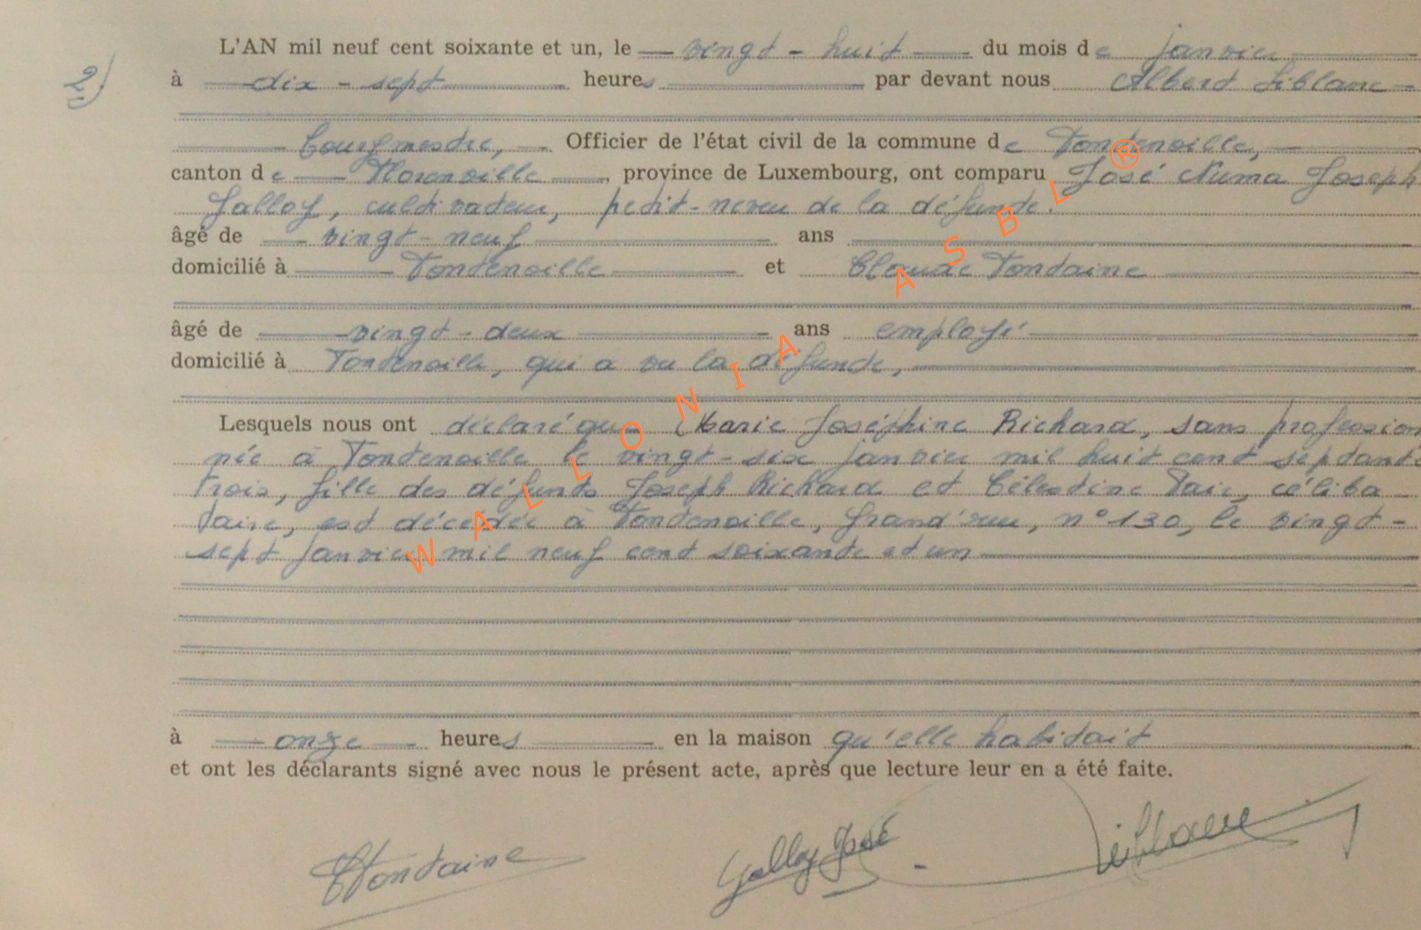 L'AN mil neuf cent soixante et un, le vingt-huit du mois de janvier
2) à dix-sept heures par devant nous Albert Liblanc
bourgmestre, Officier de l'état civil de la commune de Fontenoille,
canton de Florenville, province de Luxembourg, ont comparu José Numa Joseph
Galloy, cultivateur, petit-neveu de la défunte.
âgé de vingt-neuf ans
domicilié à Fontenoille et Claude Fontaine
âgé de vingt-deux ans employé
domicilié à Fontenoille, qui a vu la défunte,
Lesquels nous ont déclaré que Marie Joséphine Richard, sans profession
née à Fontenoille le vingt-six janvier mil huit cent septante
trois, fille des défunts Joseph Richard et Célestine, céliba-
taire, est décédée à Fontenoille, Grand'rue, n° 130, le vingt-
sept janvier mil neuf cent soixante et un
à onze heures en la maison qu'elle habitait
et ont les déclarants signé avec nous le présent acte, après que lecture leur en a été faite.
Fontaine Galloy José Liblanc
WALLONIA ASBL ®